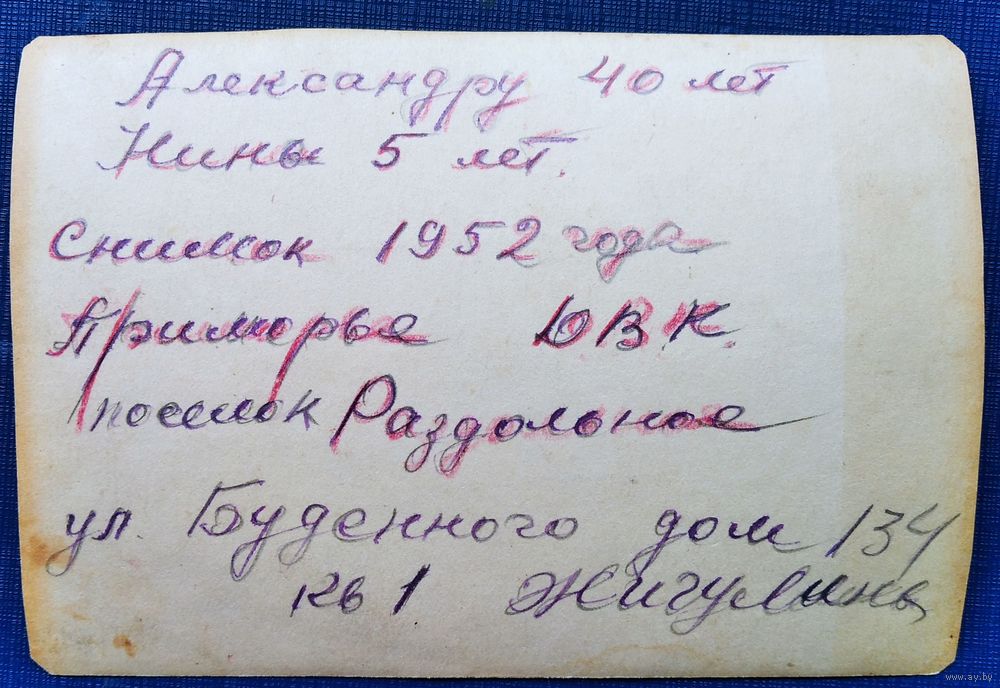 Александру 40 лет
Нины 5 лет.
Снимок 1952 года
Приморье ЮВК.
поселок Раздольное
ул. Буденного дом 134
кв 1 Жигулины
www.ay.by